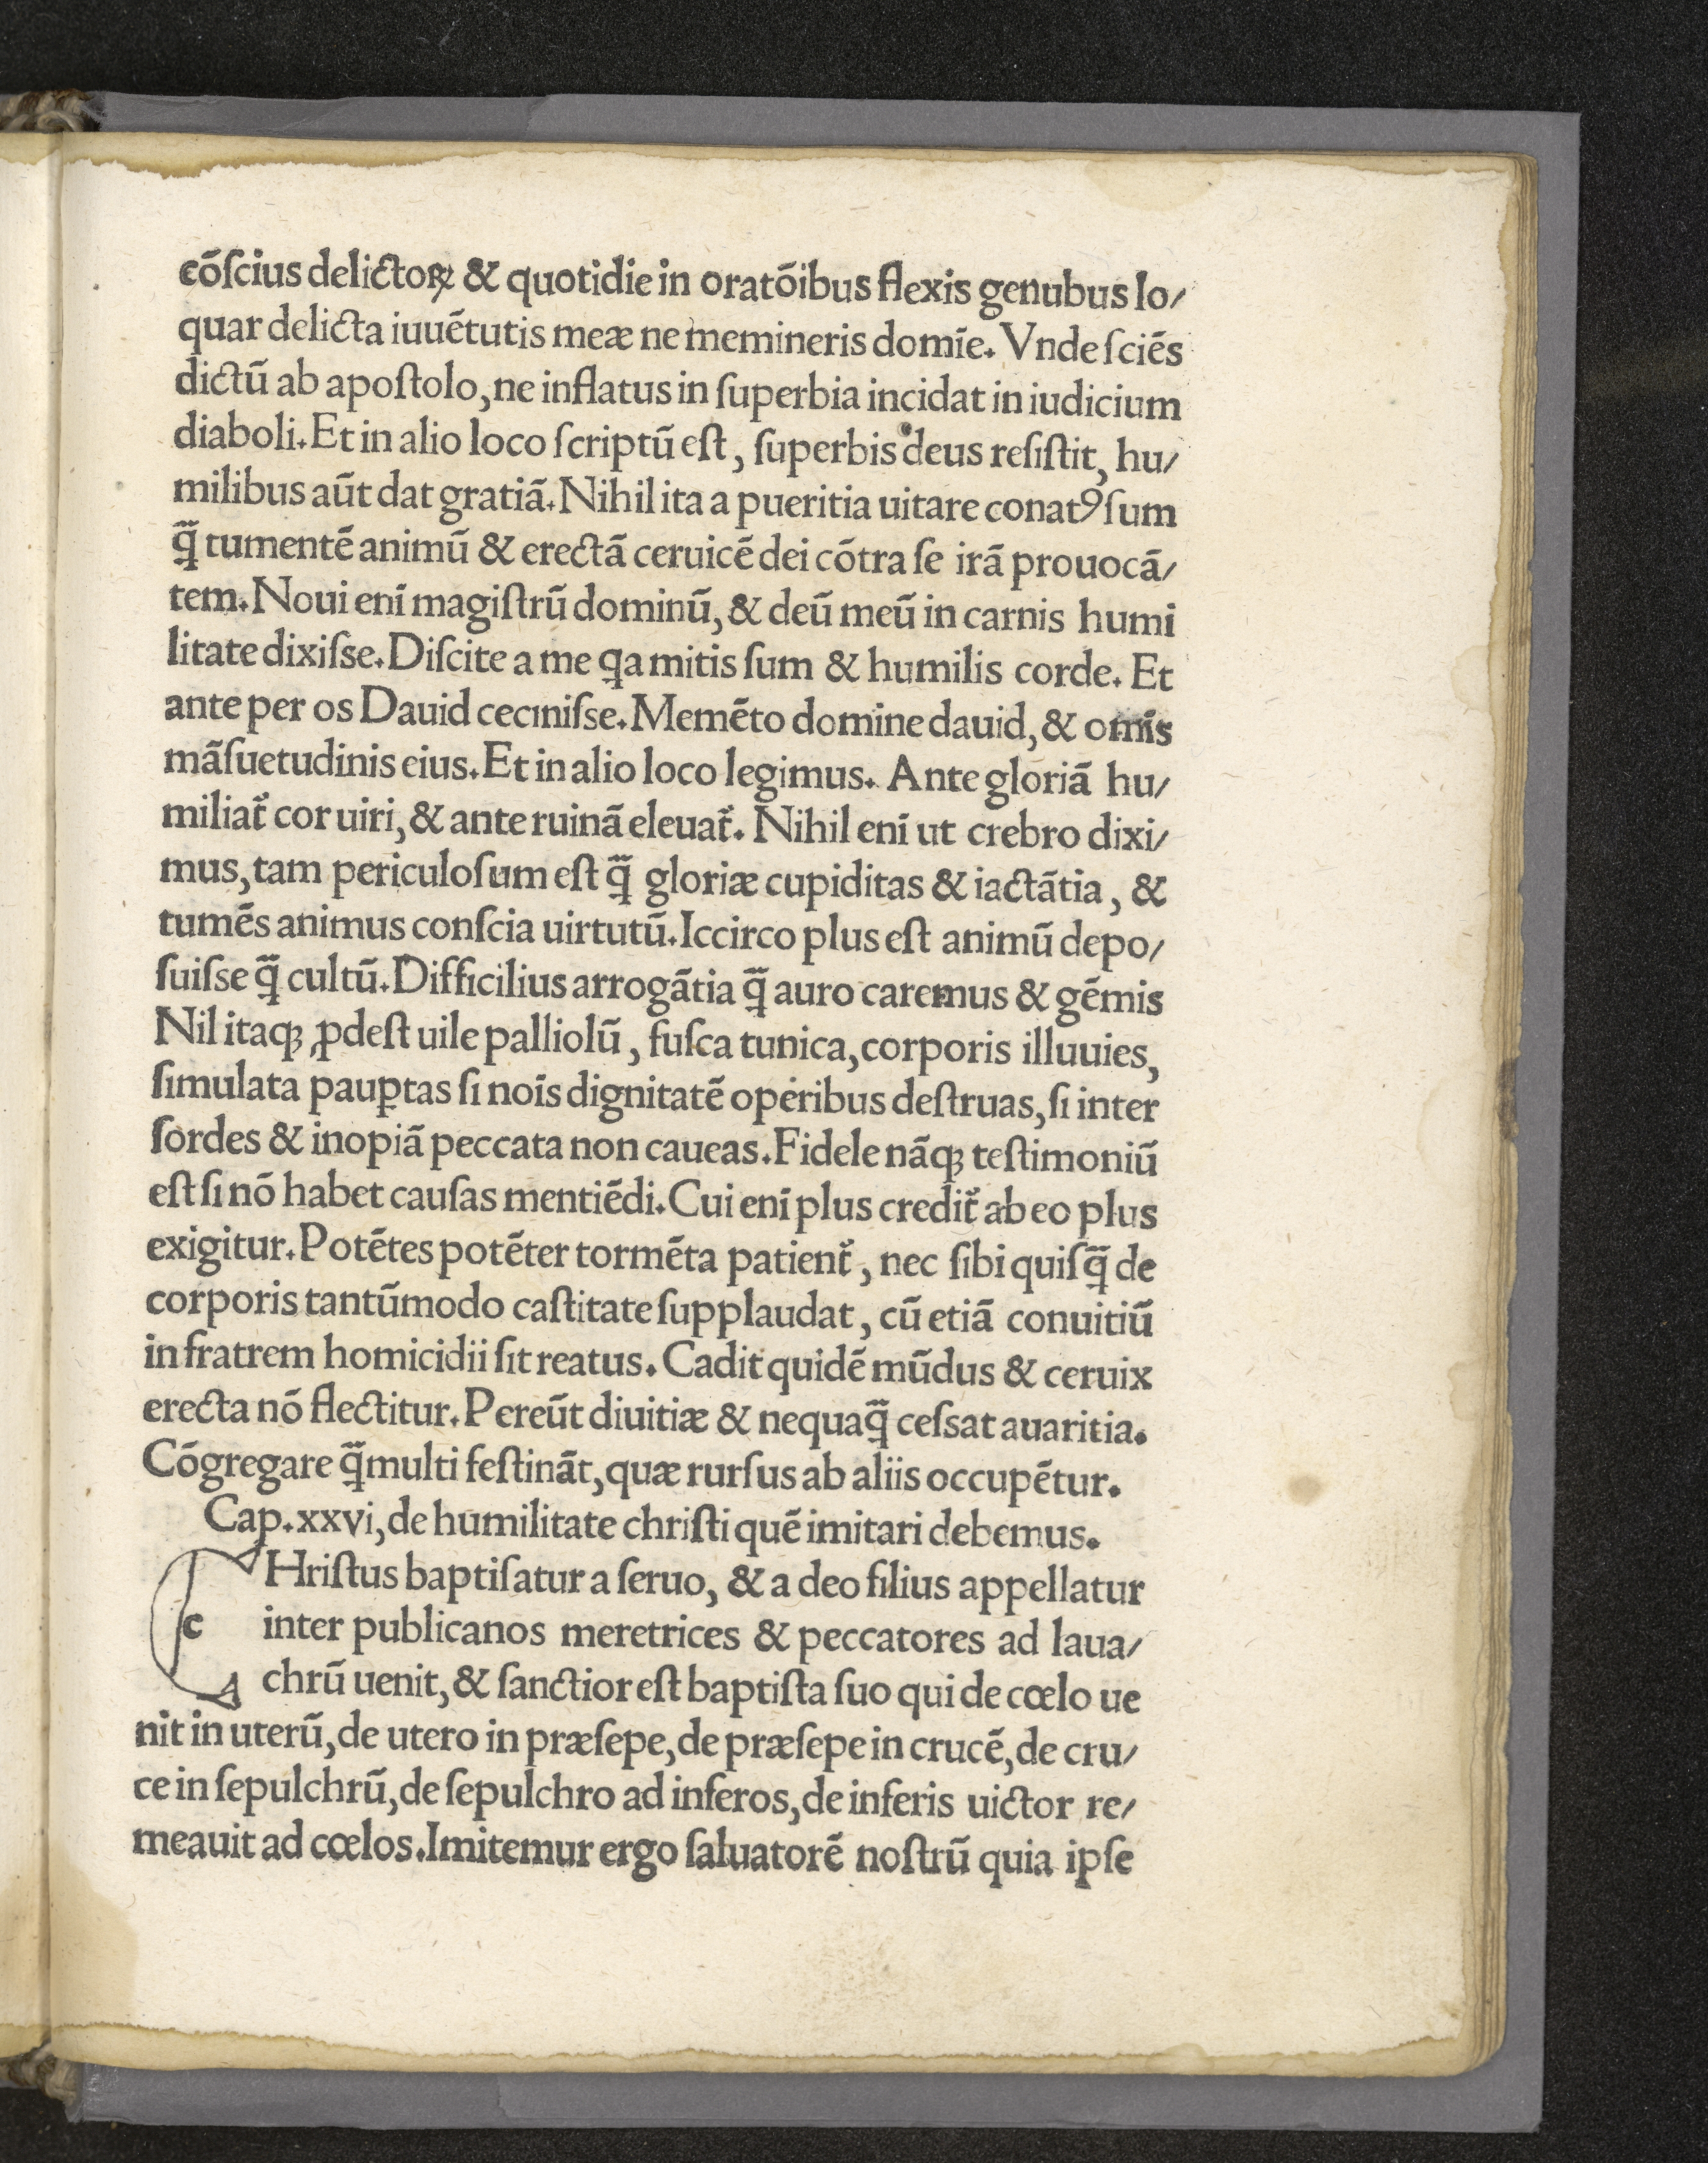 cōſcius delictoꝝ & quotidie in oratōibus flexis genubus lo/
quar delicta iuuētutis meæ ne memineris domīe. Vnde ſciēs
dictū ab apoſtolo, ne inflatus in ſuperbia incidat in iudicium
diaboli. Et in alio loco ſcriptū eſt, ſuperbis deus reſiſtit, hu/
milibus aūt dat gratiā. Nihil ita a pueritia uitare conatꝰ ſum
q̄̃ tumentē animū & erectā ceruicē dei cōtra ſe irā prouocā/
tem. Noui enī magiſtrū dominū, & deū meū in carnis humi
litate dixiſse. Diſcite a me ꝗa mitis ſum & humilis corde. Et
ante per os Dauid ceciniſse. Memēto domine dauid, & omīs
māſuetudinis eius. Et in alio loco legimus. Ante gloriā hu/
miliat̃ cor uiri, & ante ruinā eleuat̃. Nihil enī ut crebro dixi/
mus, tam periculoſum eſt q̄̃ gloriæ cupiditas & iactātia, &
tumēs animus conſcia uirtutū. Iccirco plus eſt animū depo/
ſuiſse q̄̃ cultū. Difficilius arrogātia q̄̃ auro caremus & gēmis
Nil itaqꝫ ꝓdeſt uile palliolū, fuſca tunica, corporis illuuies,
ſimulata pauꝑtas ſi noīs dignitatē operibus deſtruas, ſi inter
ſordes & inopiā peccata non caueas. Fidele nāqꝫ teſtimoniū
eſt ſi nō habet cauſas mentiēdi. Cui enī plus credit̃ ab eo plus
exigitur. Potētes potēter tormēta patient̃, nec ſibi quiſq̄̃ de
corporis tantūmodo caſtitate ſupplaudat, cū etiā conuitiū
in fratrem homicidii ſit reatus. Cadit quidē mūdus & ceruix
erecta nō flectitur. Pereūt diuitiæ & nequaq̄̃ ceſsat auaritia.
Cōgregare q̄̃ multi feſtināt, quæ rurſus ab aliis occupētur.
Cap. xxvi, de humilitate chriſti quē imitari debemus.
c Hriſtus baptiſatur a ſeruo, & a deo filius appellatur
inter publicanos meretrices & peccatores ad laua/
chrū uenit, & ſanctior eſt baptiſta ſuo qui de cœlo ue
nit in uterū, de utero in præſepe, de præſepe in crucē, de cru/
ce in ſepulchrū, de ſepulchro ad inferos, de inferis uictor re/
meauit ad cœlos. Imitemur ergo ſaluatorē noſtrū quia ipſe